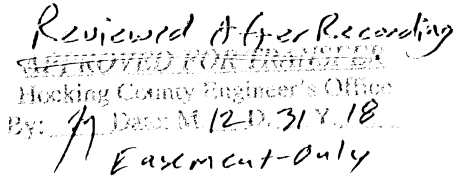 Reviewed After Recording
APPROVED FOR TRANSFER
Hocking County Engineer's Office
By: Date: M 12 D. 31 Y. 18
Easement-Only